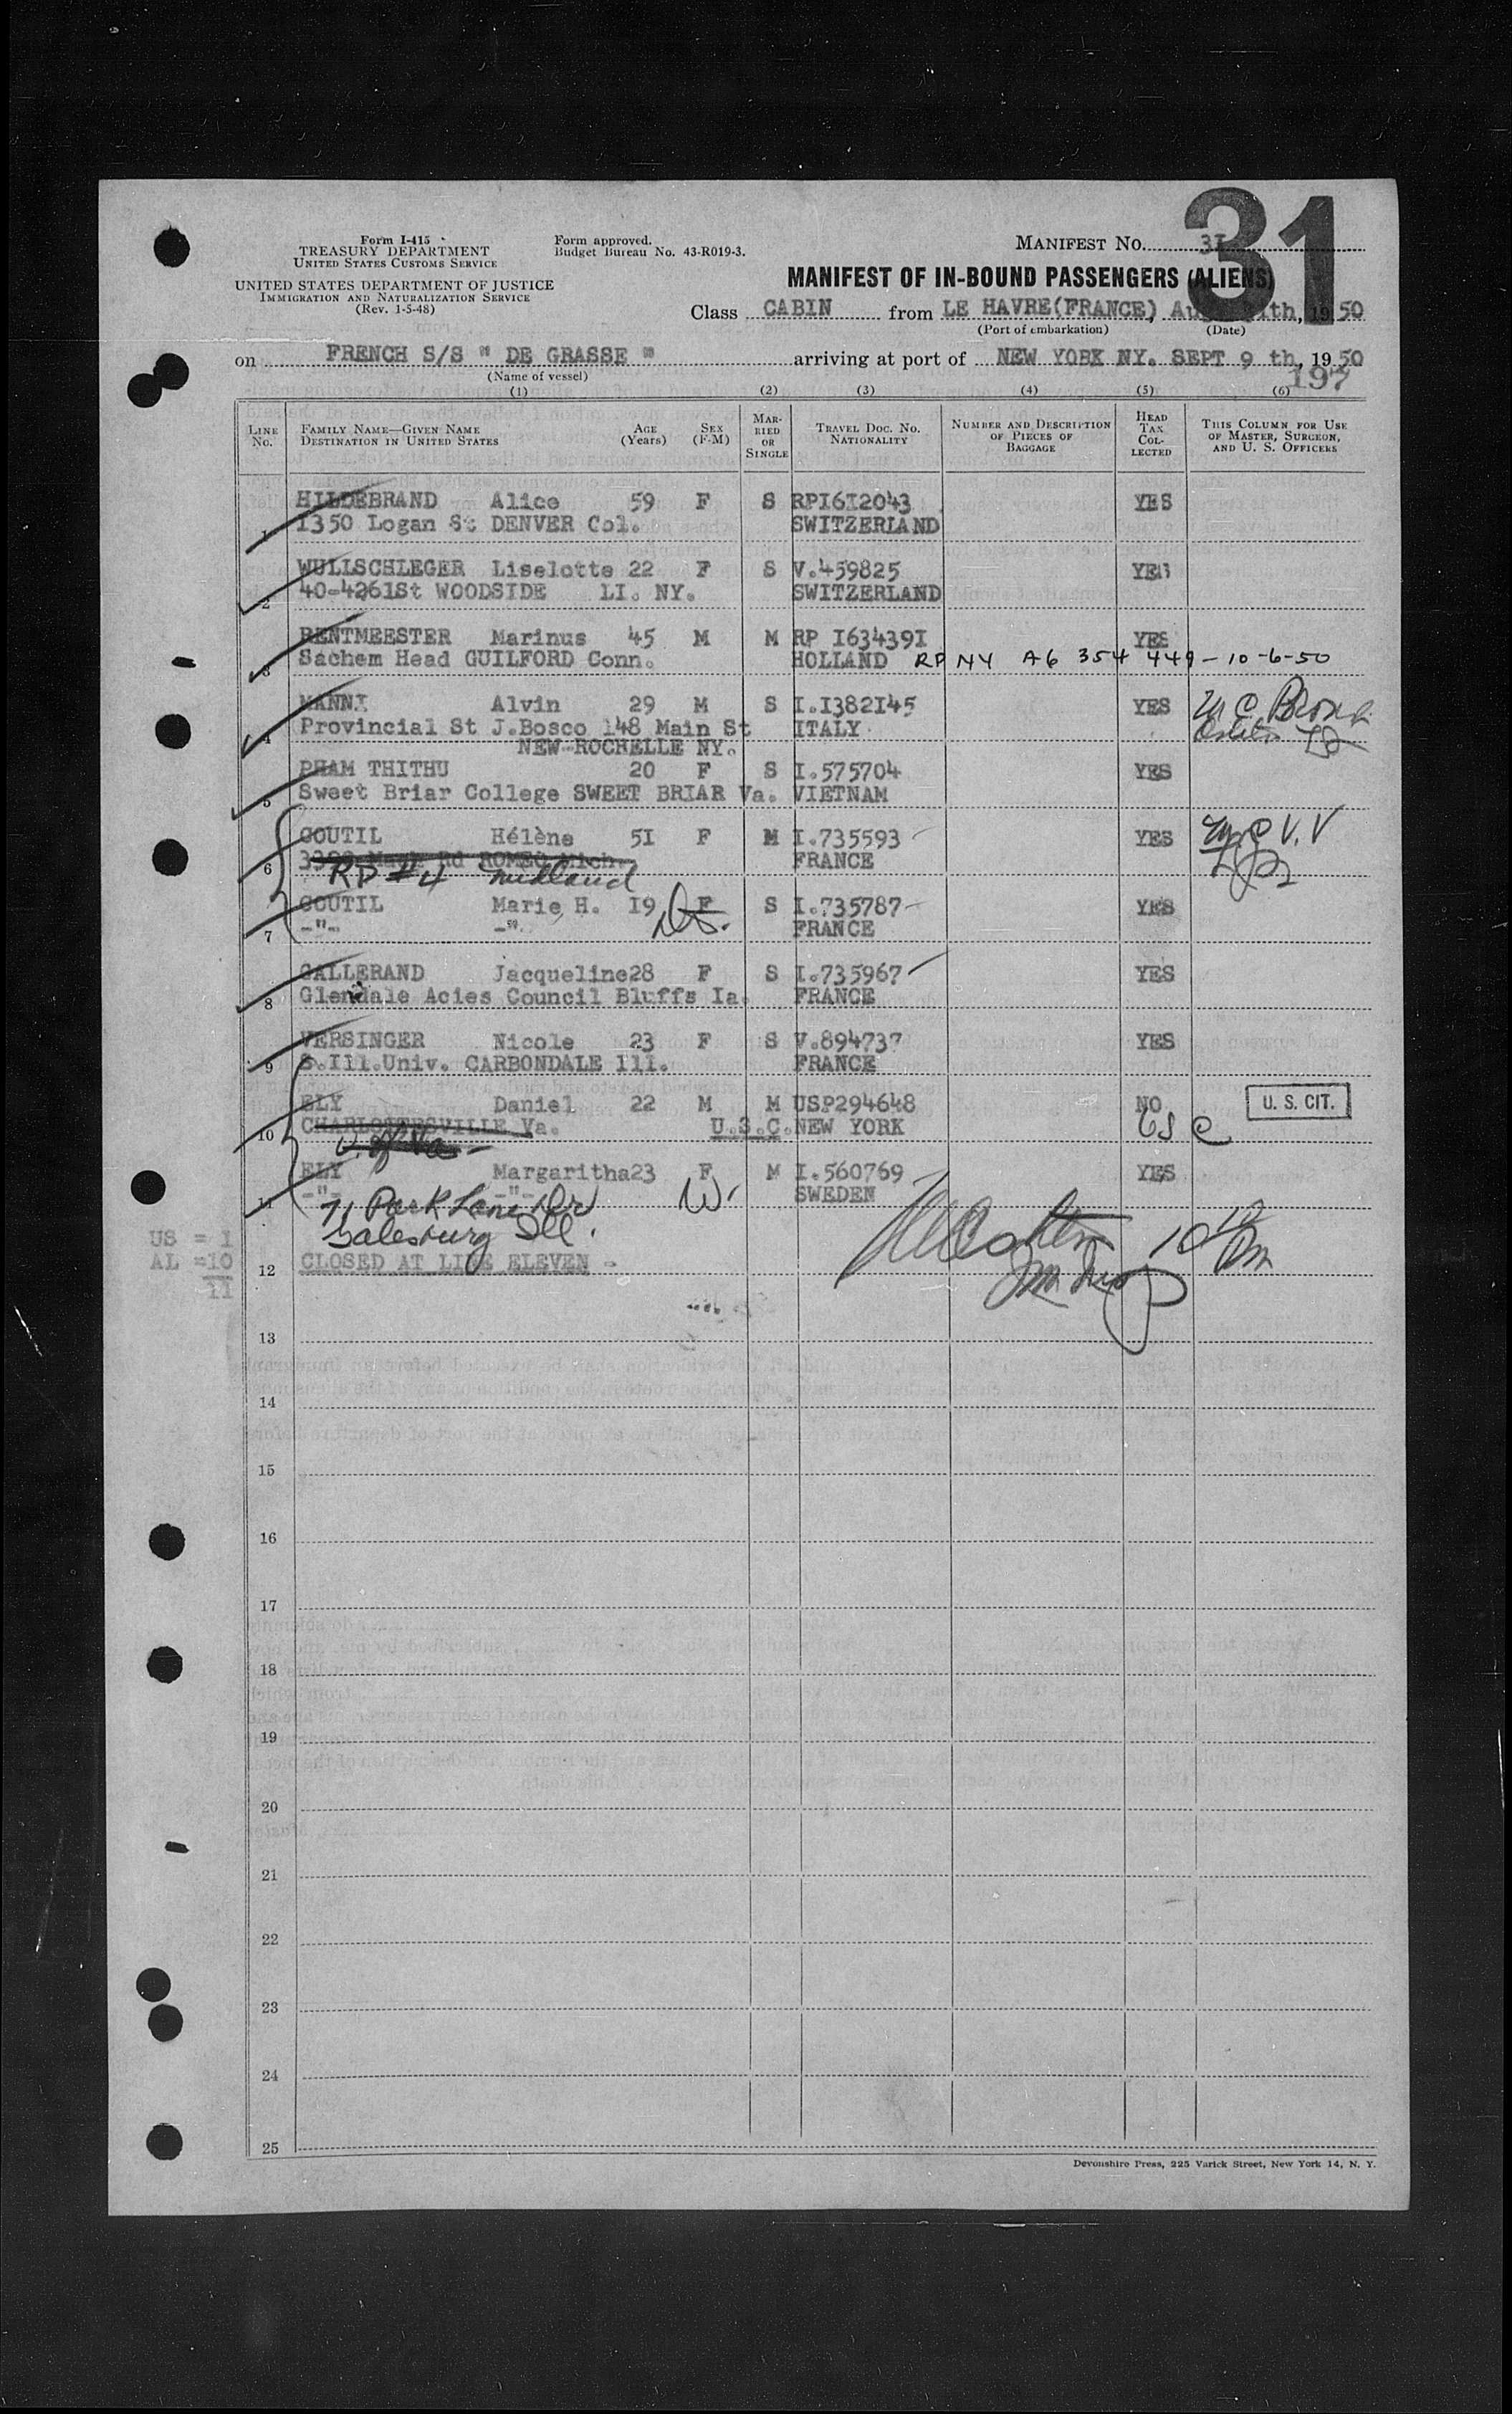 31
Form I-415
TREASURY DEPARTMENT
UNITED STATES CUSTOMS SERVICE
UNITED STATES DEPARTMENT OF JUSTICE
IMMIGRATION AND NATURALIZATION SERVICE
(Rev. 1-5-48)
Form approved.
Budget Bureau No. 43-R019-3.
MANIFEST No. 3I
MANIFEST OF IN-BOUND PASSENGERS (ALIENS)
Class CABIN from LE HAVRE(FRANCE), th, 19 50
(Port of embarkation) (Date)
on FRENCH S/S " DE GRASSE " arriving at port of NEW YORK NY. SEPT 9 th, 19 50
(Name of vessel)
197
(1) (2) (3) (4) (5) (6)
LINE No. FAMILY NAME—GIVEN NAME DESTINATION IN UNITED STATES AGE (Years) SEX (F-M) MARRIED OR SINGLE TRAVEL DOC. NO. NATIONALITY NUMBER AND DESCRIPTION OF PIECES OF BAGGAGE HEAD TAX COLLECTED THIS COLUMN FOR USE OF MASTER, SURGEON, AND U. S. OFFICERS
HILDEBRAND Alice 59 F S RPI6I2043 YES
1 I350 Logan St DENVER Col. SWITZERLAND
WULLSCHLEGER Liselotte 22 F S V.459825 YES
2 40-4261St WOODSIDE LI. NY. SWITZERLAND
RENTMEESTER Marinus 45 M M RP I63439I YES
3 Sachem Head GUILFORD Conn. HOLLAND RP NY A6 354 449-10-6-50
MANNI Alvin 29 M S I.I382I45 YES
4 Provincial St J.Bosco 148 Main St ITALY
NEW-ROCHELLE NY.
PHAM THITHU 20 F S I.575704 YES
5 Sweet Briar College SWEET BRIAR Va. VIETNAM
COUTIL Hélène 5I F M I.735593 YES
6 Rd ROMEO Mich. FRANCE
RP #4 midland
COUTIL Marie H. I9 F S I.735787 YES
7 -"- -"- FRANCE
GALLERAND Jacqueline28 F S I.735967 YES
8 Glendale Acies Council Bluffs Ia. FRANCE
VERSINGER Nicole 23 F S V.894737 YES
9 S.Ill.Univ. CARBONDALE Ill. FRANCE
ELY Daniel 22 M M USP294648 NO U. S. CIT.
10 CHARLOTTESVILLE Va. U.S.C. NEW YORK USC
U. of Va.
ELY Margaritha23 F M I.560769 YES
11 -"- -"- W. SWEDEN
71 Park Lane Dr
Galesburg Ill.
US = 1
AL =10
11
12 CLOSED AT LINE ELEVEN -
13
14
15
16
17
18
19
20
21
22
23
24
25
Devonshire Press, 225 Varick Street, New York 14, N. Y.